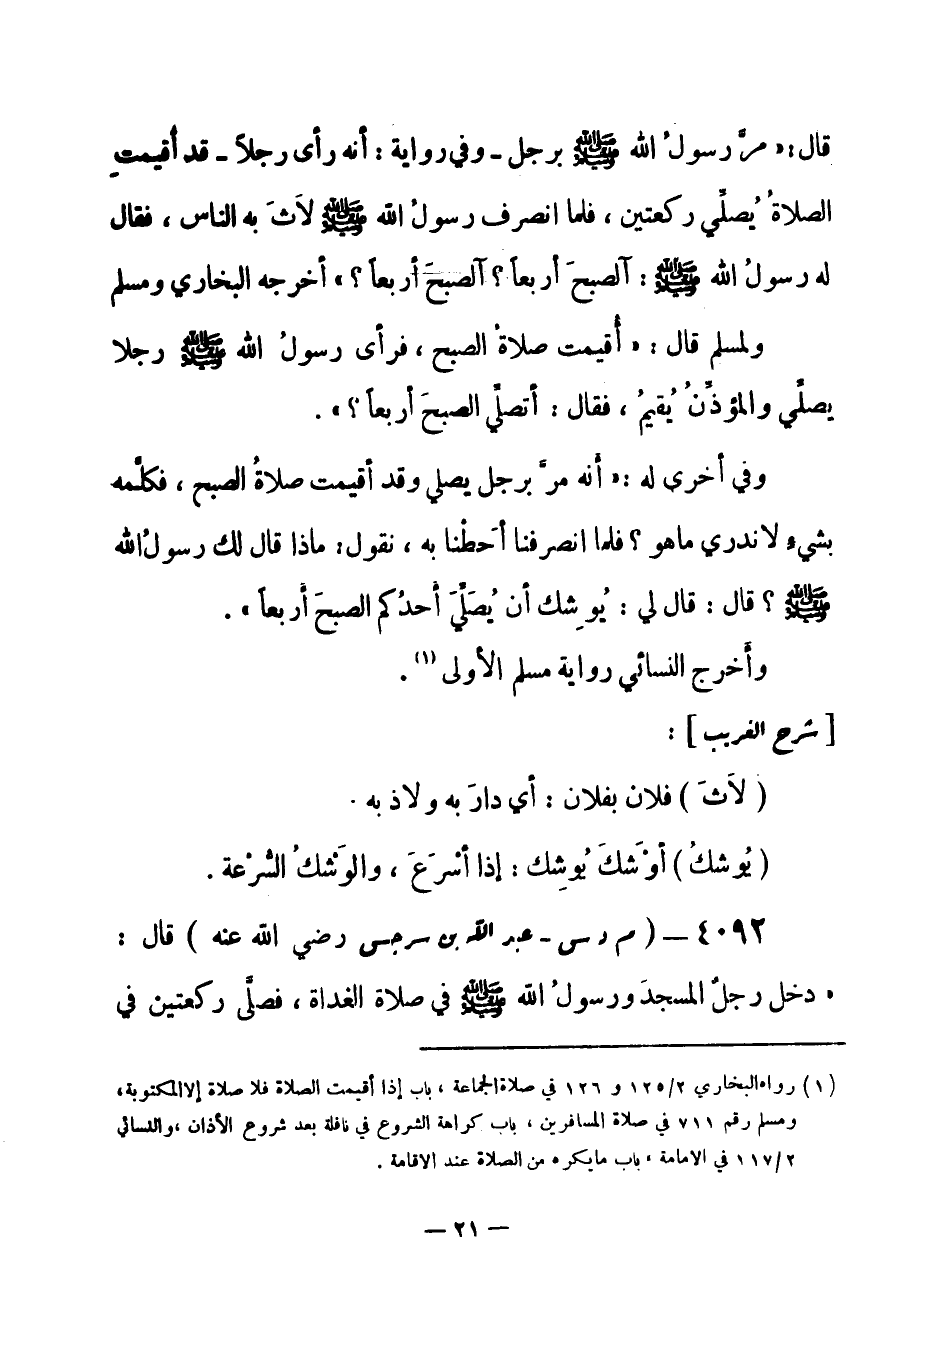 قال: « مرَّ رسولُ الله ﷺ برجل ـ وفي رواية : أنه رأى رجلاً ـ قد أُقيمتِ
الصلاةُ يُصلِّي ركعتين ، فلما انصرف رسولُ الله ﷺ لاَثَ به الناس ، فقال
له رسولُ الله ﷺ : آلصبحَ أربعاً ؟ آلصبحَ أربعاً ؟ » أخرجه البخاري ومسلم
ولمسلم قال : « أُقيمت صلاةُ الصبح ، فرأى رسولُ الله ﷺ رجلا
يصلَّي والمؤذِّنُ يُقيمُ ، فقال : أتصلِّي الصبحَ أربعاً ؟ » .
وفي أخرى له : « أنه مرَّ برجل يصلي وقد أقيمت صلاةُ الصبح ، فكلَّمه
بشيءٍ لاندري ماهو ؟ فلما انصرفنا أحَطْنا به ، نقول: ماذا قال لك رسولُ الله
ﷺ ؟ قال : قال لي : يُوشِك أن يُصَلِّيَ أحدُكم الصبحَ أربعاً » .
وأخرج النسائي رواية مسلم الأولى (١) .
[ شرح الغريب ] :
( لاَثَ ) فلان بفلان : أي دارَ به ولاذ به .
( يُوشكُ ) أوْشَكَ يُوشِك : إذا أسْرَعَ ، والوَشْكُ السُّرْعة .
٤٠٩٢ ــ ( م د س ـ عبد الله بن سرجس رضي الله عنه ) قال :
« دخل رجلٌ المسجدَ ورسولُ الله ﷺ في صلاة الغداة ، فصلَّى ركعتين في
(١) رواه البخاري ١٢٥/٢ و ١٢٦ في صلاة الجماعة ، باب إذا أقيمت الصلاة فلا صلاة إلا المكتوبة ،
ومسلم رقم ٧١١ في صلاة المسافرين ، باب كراهة الشروع في نافلة بعد شروع الأذان ، والنسائي
١١٧/٢ في الامامة ، باب مايكره من الصلاة عند الاقامة .
— ٢١ —